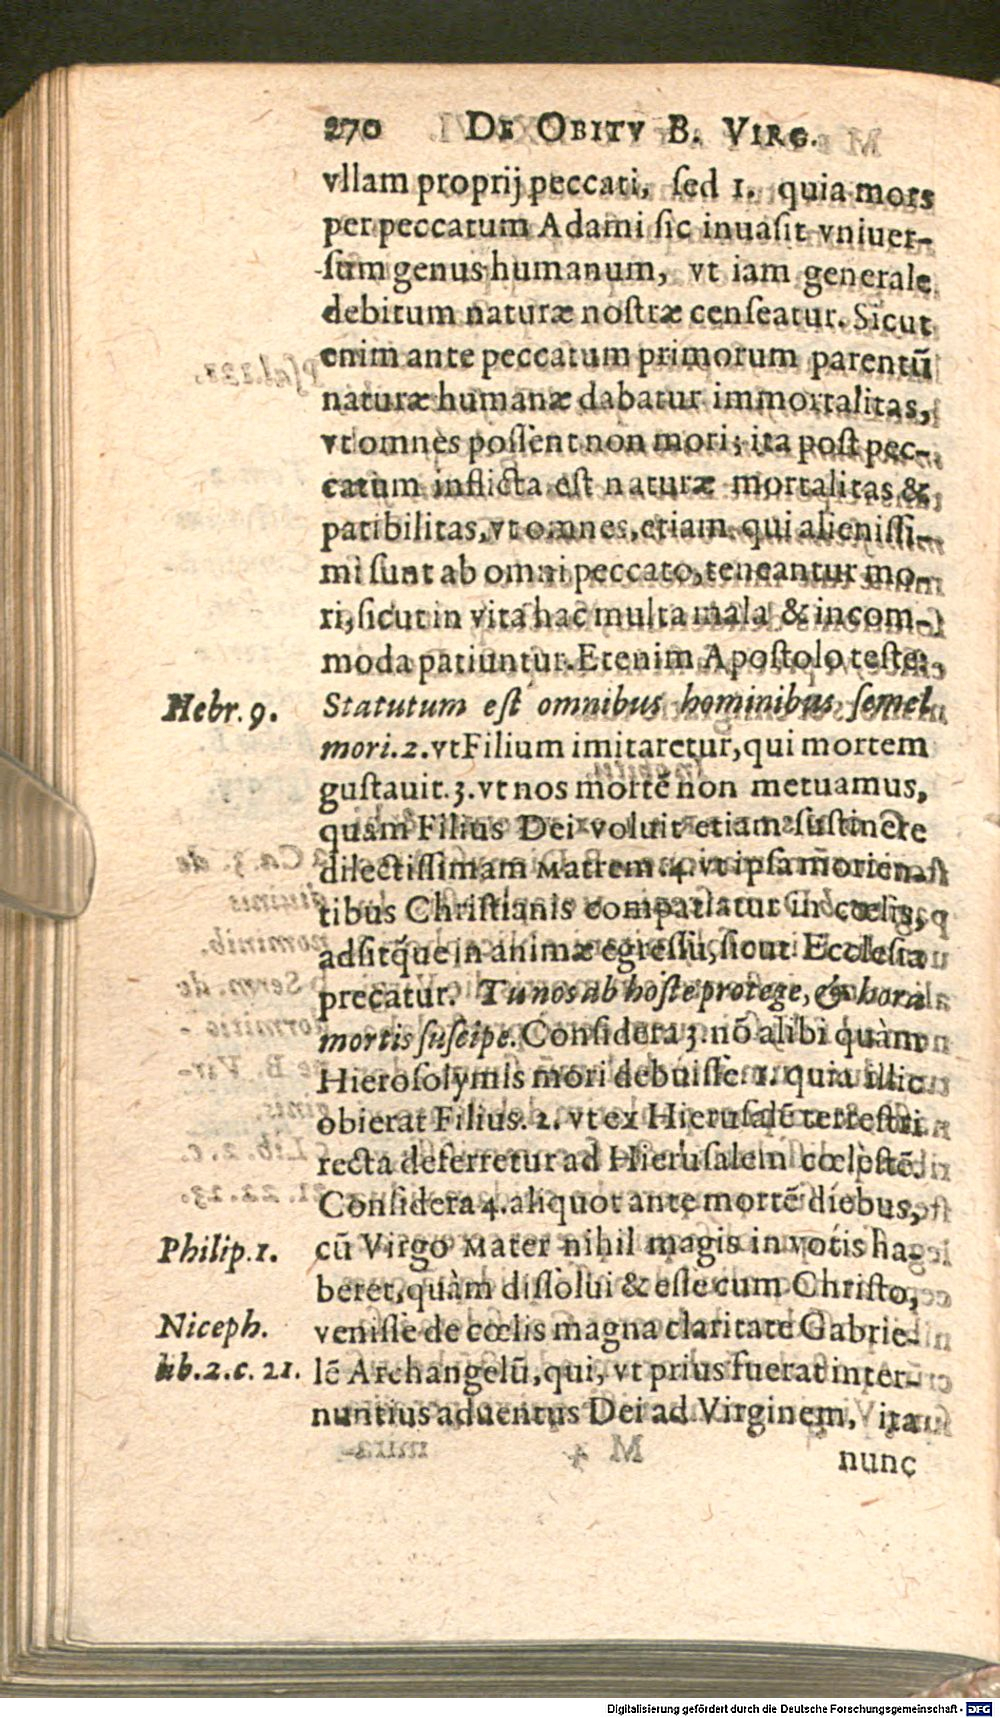 270 DE OBITV B. VIRG.
vllam proprij peccati, ſed 1. quia mors
per peccatum Adami ſic inuaſit vniuer-
ſum genus humanum, vt iam generale
debitum naturæ noſtræ cenſeatur. Sicut
enim ante peccatum primorum parentū
naturæ humanæ dabatur immortalitas,
vt omnes poſſent non mori; ita poſt pec-
catum inflicta eſt naturæ mortalitas &
patibilitas, vt omnes, etiam qui alieniſſi-
mi ſunt ab omni peccato, teneantur mo-
ri, ſicut in vita hac multa mala & incom-
moda patiuntur. Etenim Apoſtolo teſte:
Hebr. 9. Statutum eſt omnibus hominibus ſemel
mori. 2. vt Filium imitaretur, qui mortem
guſtauit. 3. vt nos mortē non metuamus,
quam Filius Dei voluit etiam ſuſtinere
dilectiſſimam Matrem. 4. vt ipſa morien-
tibus Chriſtianis compatiatur in cœlis,
adſitq́ue in animæ egreſſu, ſicut Eccleſia
precatur. Tu nos ab hoſte protege, & hora
mortis ſuſcipe. Conſidera 3. nō alibi quàm
Hieroſolymis mori debuiſſe. 1. quia illic
obierat Filius. 2. vt ex Hieruſalē terreſtri
recta deferretur ad Hieruſalem cœleſtē.
Conſidera 4. aliquot ante mortē diebus,
Philip. 1. cū Virgo Mater nihil magis in votis ha-
beret, quàm diſſolui & eſſe cum Chriſto,
Niceph. veniſſe de cœlis magna claritate Gabrie-
lib. 2. c. 21. lē Archangelū, qui, vt prius fuerat inter-
nuntius aduentus Dei ad Virginem, ita
nunc
Digitalisierung gefördert durch die Deutsche Forschungsgemeinschaft - DFG